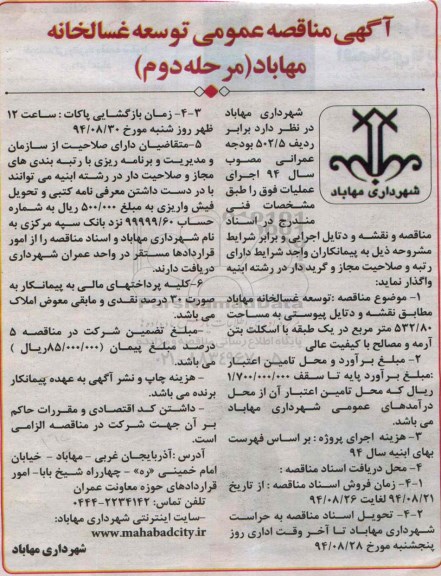 آگهی مناقصه عمومی توسعه غسالخانه
مهاباد(مرحله دوم)
شهرداری مهاباد
شهرداری مهاباد
در نظر دارد برابر
ردیف ۵۰۲/۵ بودجه
عمرانی مصوب
سال ۹۴ اجرای
عملیات فوق را طبق
مشخصات فنی
مندرج در اسناد
مناقصه و نقشه و دتایل اجرایی و برابر شرایط
مشروحه ذیل به پیمانکاران واجد شرایط دارای
رتبه و صلاحیت مجاز و گرید دار در رشته ابنیه
واگذار نماید:
۱- موضوع مناقصه :توسعه غسالخانه مهاباد
مطابق نقشه و دتایل پیوستی به مساحت
۵۳۲/۸۰ متر مربع در یک طبقه با اسکلت بتن
آرمه و مصالح با کیفیت عالی
۲- مبلغ بر آورد و محل تامین اعتبار
:مبلغ بر آورد پایه تا سقف ۱/۷۰۰/۰۰۰/۰۰۰
ریال که محل تامین اعتبار آن از محل
درآمدهای عمومی شهرداری مهاباد
می باشد.
۳- هزینه اجرای پروژه : بر اساس فهرست
بهای ابنیه سال ۹۴
۴- محل دریافت اسناد مناقصه :
۴-۱- زمان فروش اسناد مناقصه : از تاریخ
۹۴/۰۸/۲۱ لغایت ۹۴/۰۸/۲۶
۴-۲- تحویل اسناد مناقصه به حراست
شهرداری مهاباد تا آخر وقت اداری روز
پنجشنبه مورخ ۹۴/۰۸/۲۸
۴-۳- زمان بازگشایی پاکات : ساعت ۱۲
ظهر روز شنبه مورخ ۹۴/۰۸/۳۰
۵-متقاضیان دارای صلاحیت از سازمان
و مدیریت و برنامه ریزی با رتبه بندی های
مجاز و صلاحیت دار در رشته ابنیه می توانند
با در دست داشتن معرفی نامه کتبی و تحویل
فیش واریزی به مبلغ ۵۰۰/۰۰۰ ریال به شماره
حساب ۹۹۹۹۹/۶۰ نزد بانک سپه مرکزی به
نام شهرداری مهاباد و اسناد مناقصه را از امور
قراردادها مستقر در واحد عمران شهرداری
دریافت دارند.
۶-کلیه پرداختهای مالی به پیمانکار به
صورت ۳۰ درصد نقدی و مابقی معوض املاک
می باشد.
-مبلغ تضمین شرکت در مناقصه ۵
درصد مبلغ پیمان (۸۵/۰۰۰/۰۰۰ریال )
می باشد.
- هزینه چاپ و نشر آگهی به عهده پیمانکار
برنده می باشد.
- داشتن کد اقتصادی و مقررات حاکم
بر آن جهت شرکت در مناقصه الزامی
است.
آدرس :آذربایجان غربی - مهاباد - خیابان
امام خمینی «ره» - چهارراه شیخ بابا- امور
قراردادهای حوزه معاونت عمران
تلفن تماس: ۲۲۳۴۱۴۲-۰۴۴۴
-سایت اینترنتی شهرداری مهاباد:
www.mahabadcity.ir
شهرداری مهاباد